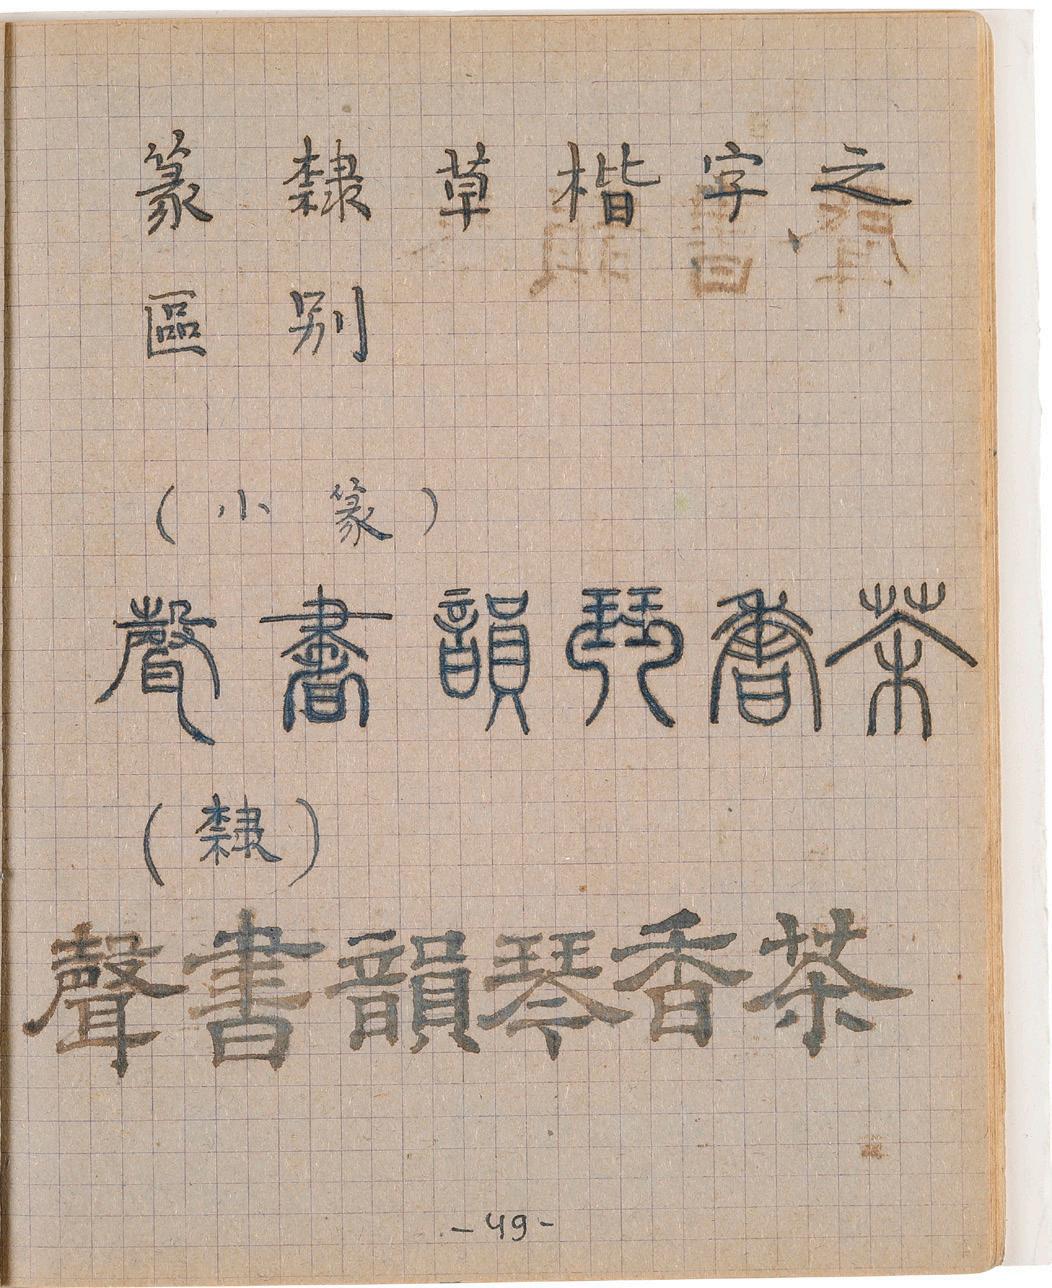 篆隷草楷字之
區別
(小篆)
茶香琴韻書聲
(隷)
茶香琴韻書聲
-49-